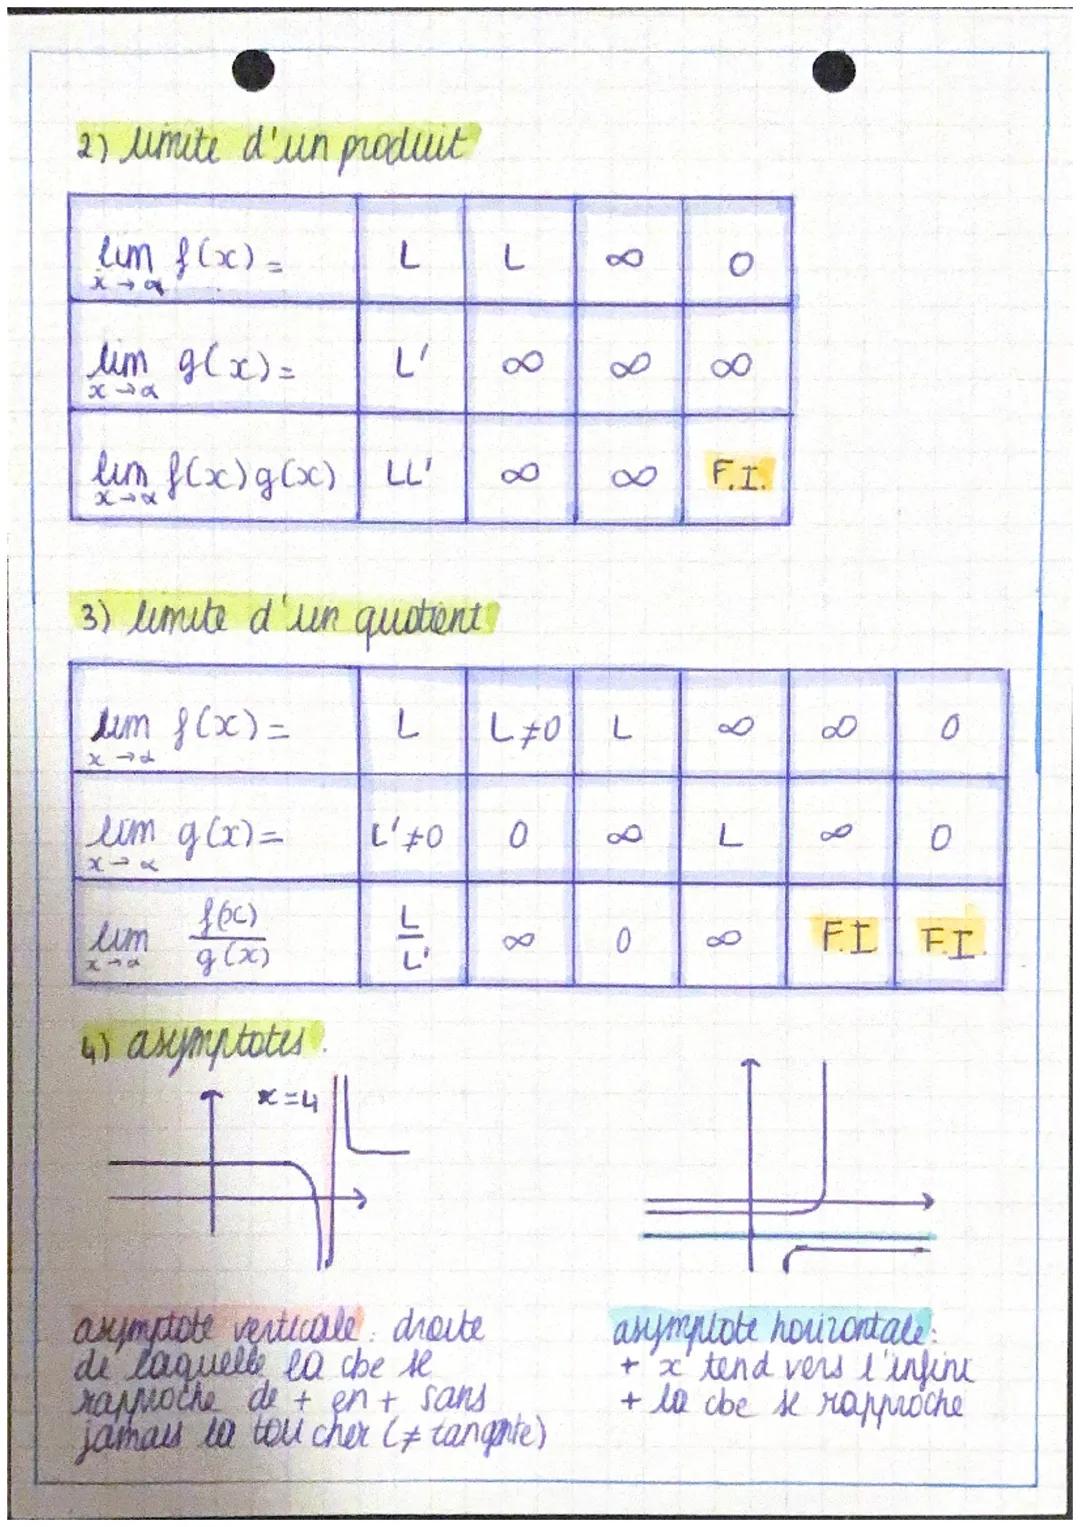 2) limite d'un produit
lim f(x) = L L ∞ 0
x→α
lim g(x) = L' ∞ ∞ ∞
x→α
lim f(x)g(x) LL' ∞ ∞ F.I.
x→α
3) limite d'un quotient
lim f(x) = L L≠0 L ∞ ∞ 0
x→α
lim g(x) = L'≠0 0 ∞ L ∞ 0
x→α
lim f(x)/g(x) L/L' ∞ 0 ∞ F.I F.I.
x→α
4) asymptotes.
x=4
asymptote verticale: droite
de laquelle la cbe se
rapproche de + en + sans
jamais la toucher (≠ tangente)
asymptote horizontale:
+ x tend vers l'infini
+ la cbe se rapproche